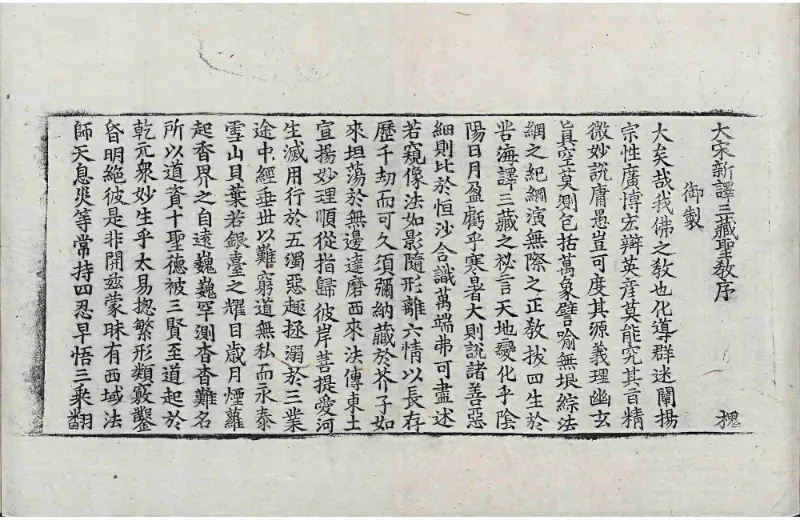 大宋新譯三藏聖教序　槐
御製
大矣哉我佛之教也化導群迷闡揚
宗性廣博宏辯英彥莫能究其旨精
微妙說庸愚豈可度其源義理幽玄
眞空莫測包括萬象譬喻無垠綜法
網之紀綱演無際之正教拔四生於
苦海譯三藏之祕言天地變化乎陰
陽日月盈虧乎寒暑大則說諸善惡
細則比於恒沙含識萬端弗可盡述
若窺像法如影隨形離六情以長存
歷千劫而可久須彌納藏於芥子如
來坦蕩於無邊達磨西來法傳東土
宣揚妙理順從指歸彼岸菩提愛河
生滅用行於五濁惡趣拯溺於三業
途中經垂世以難窮道無私而永泰
雪山貝葉若銀臺之耀目歲月煙蘿
起香界之自遠巍巍罕測杳杳難名
所以道資十聖德被三賢至道起於
乾元衆妙生乎太易揔繁形類竅鑿
昏明絕彼是非開茲蒙昧有西域法
師天息災等常持四忍早悟三乘翻